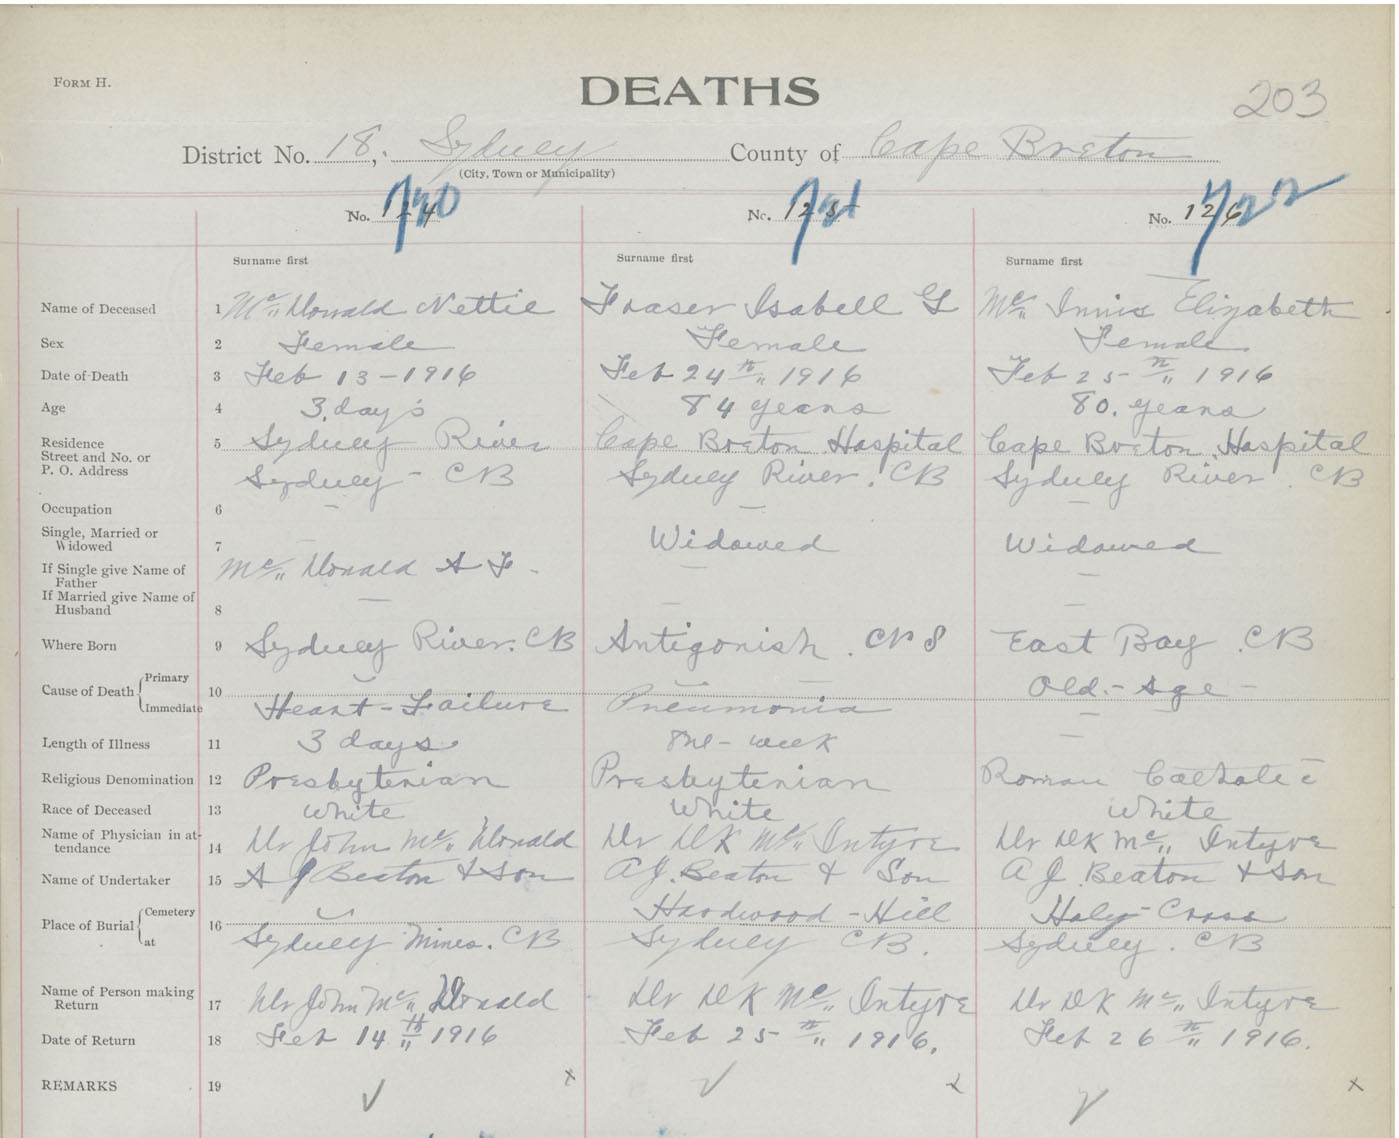 FORM H.
DEATHS
203
District No. 18, Sydney County of Cape Breton
(City, Town or Municipality)
No. 124 720 No. 125 721 No. 126 722
Surname first Surname first Surname first
Name of Deceased 1 Mc„ Donald Nettie Fraser Isabell G Mc„ Innis Elizabeth
Sex 2 Female Female Female
Date of Death 3 Feb 13-1916 Feb 24th„ 1916 Feb 25th„ 1916
Age 4 3 days 84 years 80. years
Residence 5 Sydney River Cape Breton Hospital Cape Breton Hospital
Street and No. or
P. O. Address Sydney - CB Sydney River. CB Sydney River. CB
Occupation 6 - - -
Single, Married or
Widowed 7 - Widowed Widowed
If Single give Name of
Father Mc„ Donald A F. - -
If Married give Name of
Husband 8 - - -
Where Born 9 Sydney River. CB Antigonish. C N S East Bay. CB
Cause of Death Primary 10 Old-Age-
Immediate Heart-Failure Pneumonia -
Length of Illness 11 3 days One-week -
Religious Denomination 12 Presbyterian Presbyterian Roman Catholic
Race of Deceased 13 White White White
Name of Physician in at-
tendance 14 Dr John Mc„ Donald Dr DK Mc„ Intyre Dr DK Mc„ Intyre
Name of Undertaker 15 A J Beaton & Son A J. Beaton & Son A J. Beaton & Son
Place of Burial Cemetery 16 Hardwood-Hill Holy-Cross
at Sydney Mines. CB Sydney CB. Sydney. CB
Name of Person making
Return 17 Dr John Mc„ Donald Dr DK Mc„ Intyre Dr DK Mc„ Intyre
Date of Return 18 Feb 14th„ 1916 Feb 25th„ 1916. Feb 26th„ 1916.
REMARKS 19 ✓ x ✓ x ✓ x